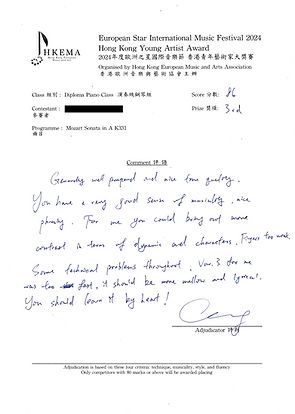 HKEMA
European Star International Music Festival 2024
Hong Kong Young Artist Award
2024年度歐洲之星國際音樂節 香港青年藝術家大獎賽
Organised by Hong Kong European Music and Arts Association
香港歐洲音樂與藝術協會主辦
Class 組別: Diploma Piano Class 演奏級鋼琴組 Score 分數: 86
Contestant: Prize 獎項: 3rd
參賽者
Programme: Mozart Sonata in A K331
曲目
Comment 評錄
Generally well prepared and nice tone quality.
You have a very good sense of musicality, nice
phrasing. For me you could bring out more
contrast in terms of dynamic and characters. Fingers too weak.
Some technical problems throughout. Var. 3 for me
was too fast, it should be more mellow and lyrical.
You should learn it by heart!
Adjudicator 評判
Adjudication is based on these four criteria: technique, musicality, style, and fluency
Only competitors with 80 marks or above will be awarded placing